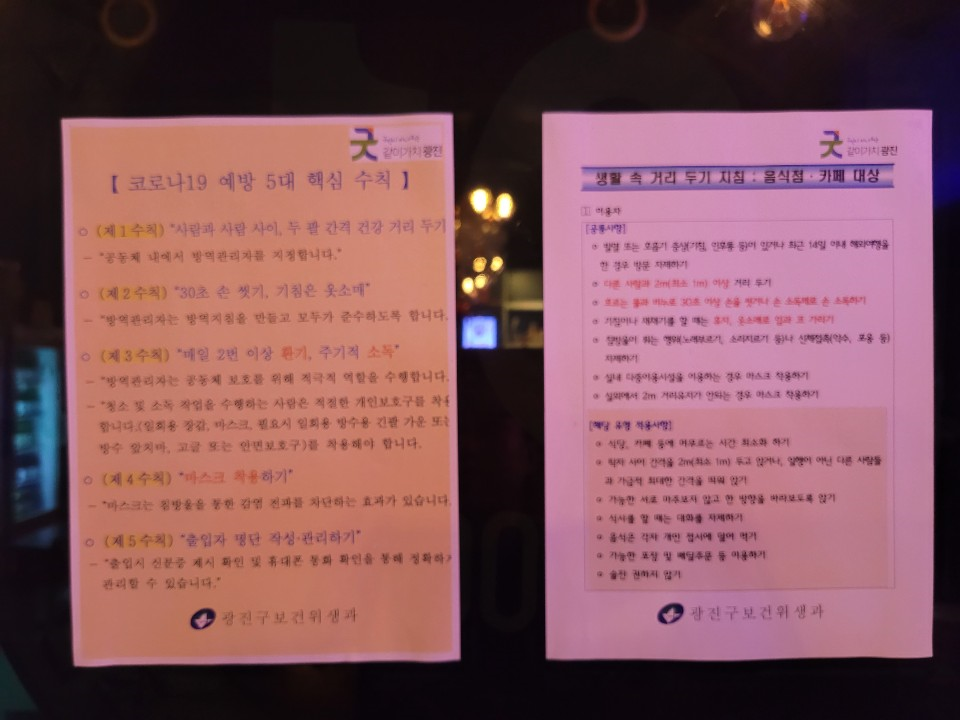 굿
같이가치 광진
【 코로나19 예방 5대 핵심 수칙 】
○ (제1수칙) "사람과 사람 사이, 두 팔 간격 건강 거리 두기
- "공동체 내에서 방역관리자를 지정합니다."
○ (제2수칙) "30초 손 씻기, 기침은 옷소매"
- "방역관리자는 방역지침을 만들고 모두가 준수하도록 합니다.
○ (제3수칙) "매일 2번 이상 환기, 주기적 소독"
- "방역관리자는 공동체 보호를 위해 적극적 역할을 수행합니다.
- "청소 및 소독 작업을 수행하는 사람은 적절한 개인보호구를 착용
합니다.(일회용 장갑, 마스크, 필요시 일회용 방수용 긴팔 가운 또는
방수 앞치마, 고글 또는 안면보호구)를 착용해야 합니다.
○ (제4수칙) "마스크 착용하기"
- "마스크는 침방울을 통한 감염 전파를 차단하는 효과가 있습니다.
○ (제5수칙) "출입자 명단 작성·관리하기"
- "출입시 신분증 제시 확인 및 휴대폰 통화 확인을 통해 정확하게
관리할 수 있습니다."
광진구보건위생과
굿
같이가치 광진
생활 속 거리 두기 지침 : 음식점·카페 대상
① 이용자
[공통사항]
○ 발열 또는 호흡기 증상(기침, 인후통 등)이 있거나 최근 14일 이내 해외여행을
한 경우 방문 자제하기
○ 다른 사람과 2m(최소 1m) 이상 거리 두기
○ 흐르는 물과 비누로 30초 이상 손을 씻거나 손 소독제로 손 소독하기
○ 기침이나 재채기를 할 때는 휴지, 옷소매로 입과 코 가리기
○ 침방울이 튀는 행위(노래부르기, 소리지르기 등)나 신체접촉(악수, 포옹 등)
자제하기
○ 실내 다중이용시설을 이용하는 경우 마스크 착용하기
○ 실외에서 2m 거리유지가 안되는 경우 마스크 착용하기
[해당 유형 적용사항]
○ 식당, 카페 등에 머무르는 시간 최소화 하기
○ 탁자 사이 간격을 2m(최소 1m) 두고 앉거나, 일행이 아닌 다른 사람들
과 가급적 최대한 간격을 띄워 앉기
○ 가능한 서로 마주보지 않고 한 방향을 바라보도록 앉기
○ 식사를 할 때는 대화를 자제하기
○ 음식은 각자 개인 접시에 덜어 먹기
○ 가능한 포장 및 배달주문 등 이용하기
○ 술잔 권하지 않기
광진구보건위생과